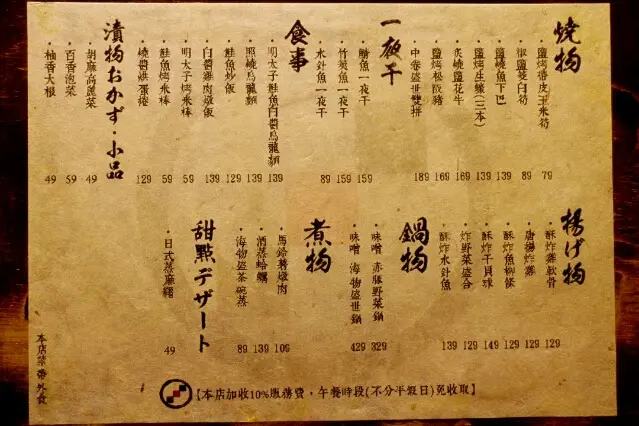 焼物
鹽烤帶皮玉米筍 79
椒鹽筊白筍 89
鹽燒魚下巴 139
鹽烤生蠔(三本) 139
炙燒鹽花牛 169
鹽烤松阪豬 169
中卷盛世雙拼 189
一夜干
鯖魚一夜干 159
竹筴魚一夜干 159
水針魚一夜干 89
食事
明太子鮭魚白醬烏龍麵 139
照燒烏龍麵 139
鮭魚炒飯 129
白醬雞肉燉飯 139
明太子烤米棒 59
鮭魚烤米棒 59
燒醬烘蛋捲 129
漬物おかず・小品
胡麻高麗菜 49
百香泡菜 59
柚香大根 49
揚げ物
酥炸雞軟骨 129
唐揚炸雞 129
酥炸魚柳條 129
酥炸干貝球 149
炸野菜盛合 129
酥炸水針魚 139
鍋物
味噌 赤豚野菜鍋 329
味噌 海物盛世鍋 429
煮物
馬鈴薯燉肉 109
酒蒸蛤蠣 139
海物盛茶碗蒸 89
甜點デザート
日式蒸麻糬 49
本店禁帶外食
【本店加收10%服務費,午餐時段(不分平假日)免收取】